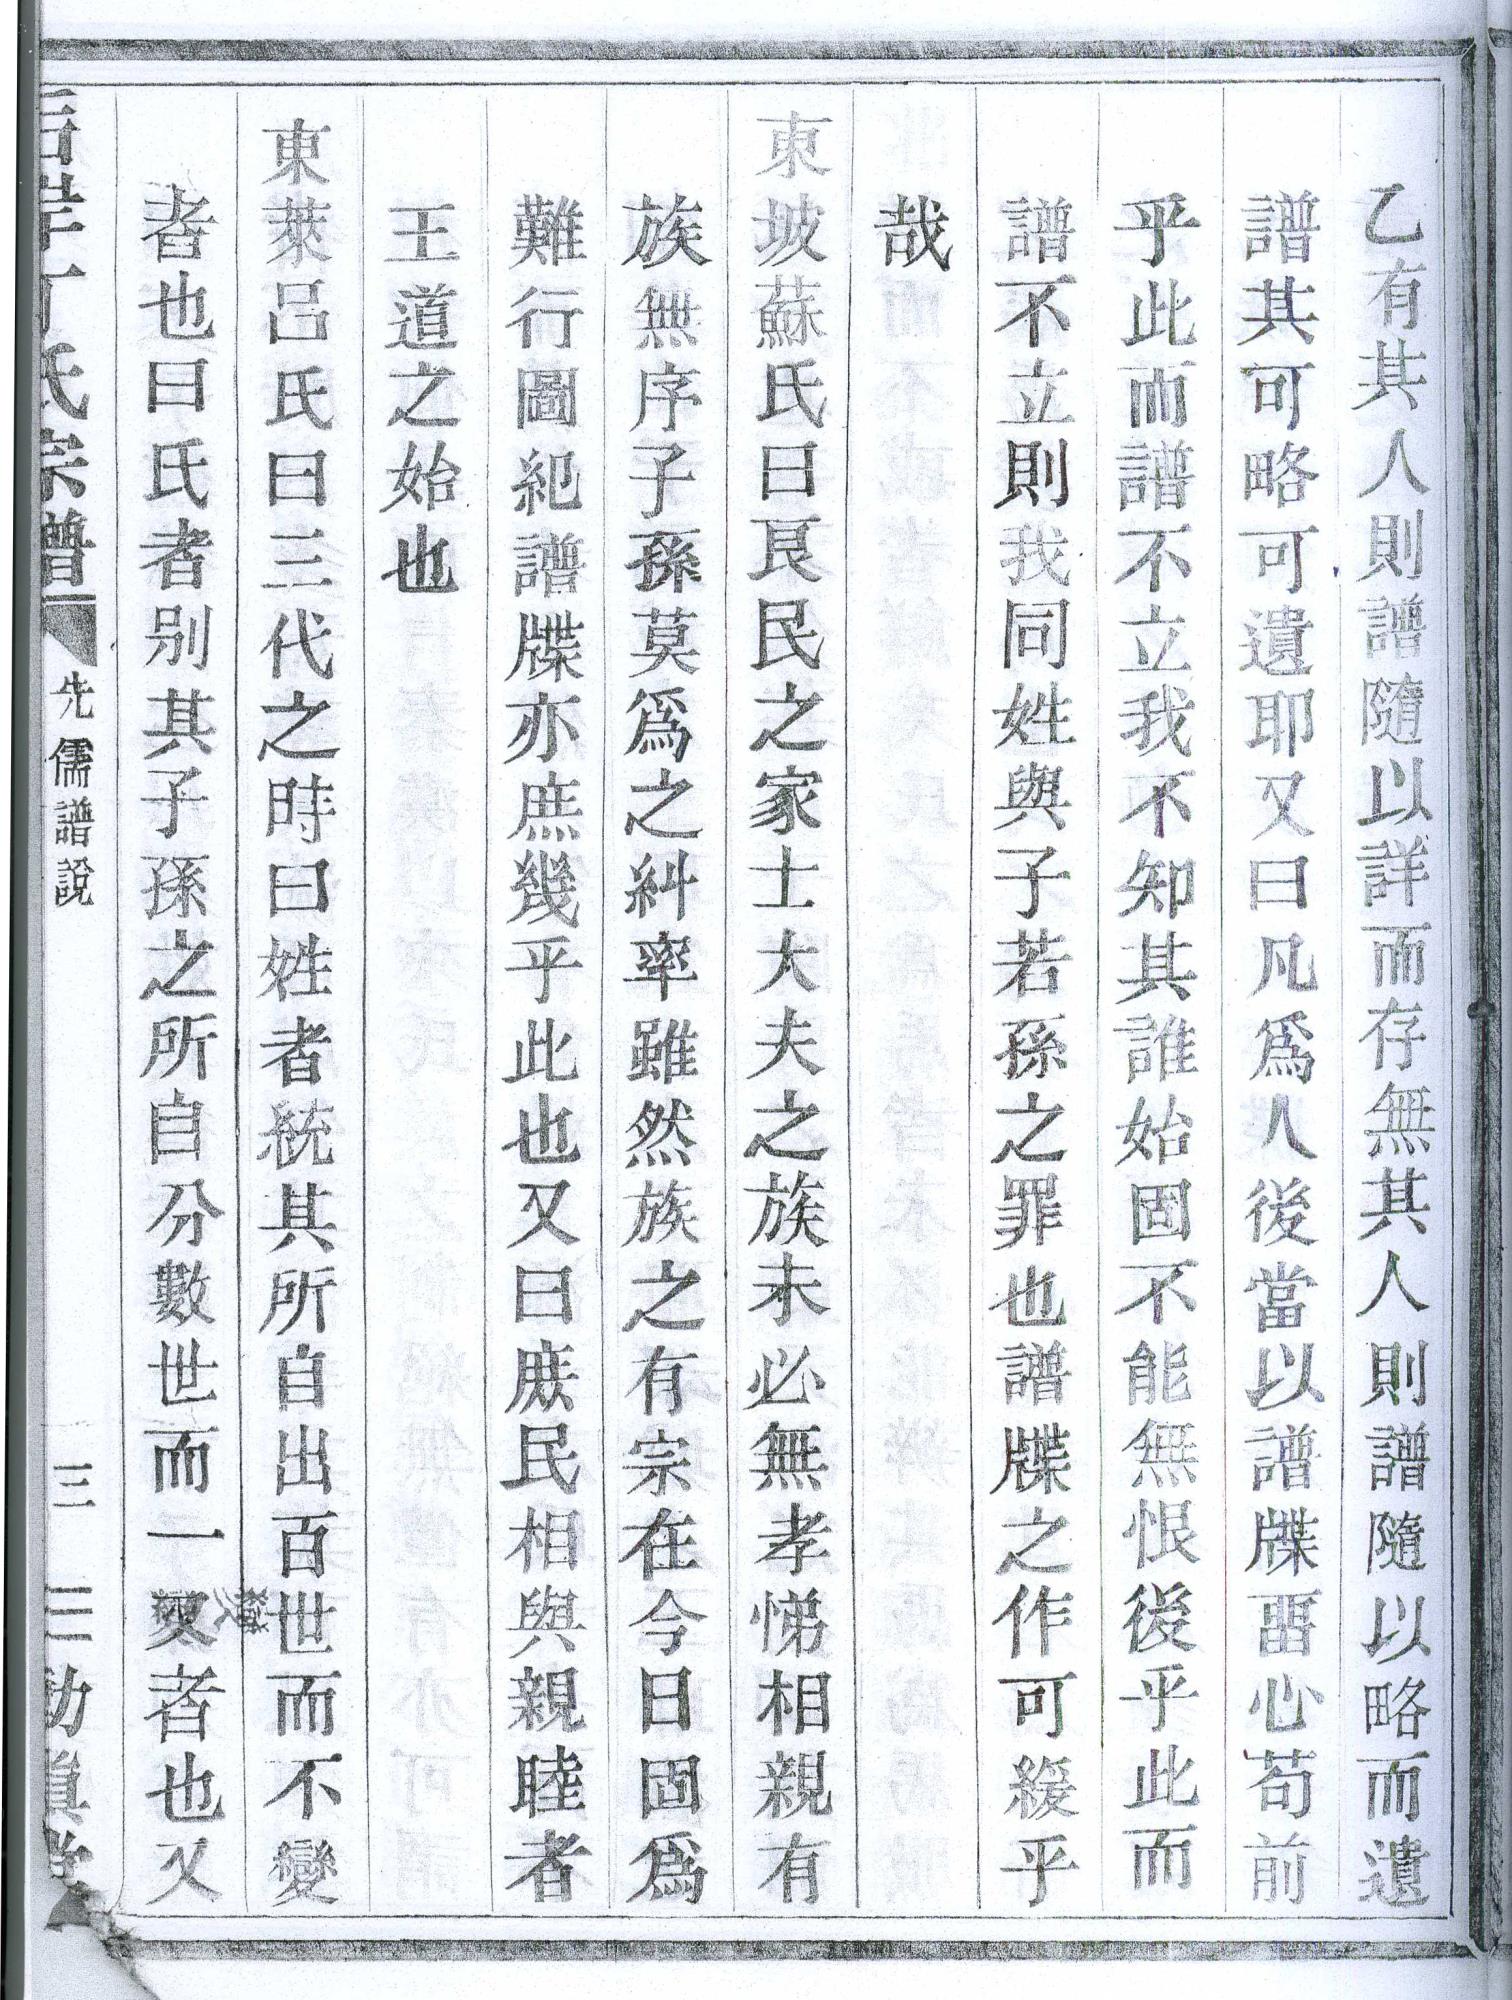 乙有其人則譜隨以詳而存無其人則譜隨以略而遺
譜其可略可遺耶又曰凡爲人後當以譜牒畱心苟前
乎此而譜不立我不知其誰始固不能無恨後乎此而
譜不立則我同姓與子若孫之罪也譜牒之作可緩乎
哉
東坡蘇氏曰良民之家士大夫之族未必無孝悌相親有
族無序子孫莫爲之糾率雖然族之有宗在今日固爲
難行圖紀譜牒亦庶幾乎此也又曰庶民相與親睦者
王道之始也
東萊呂氏曰三代之時曰姓者統其所自出百世而不變
者也曰氏者别其子孫之所自分數世而一變者也又
丁氏宗譜
先儒譜說
三